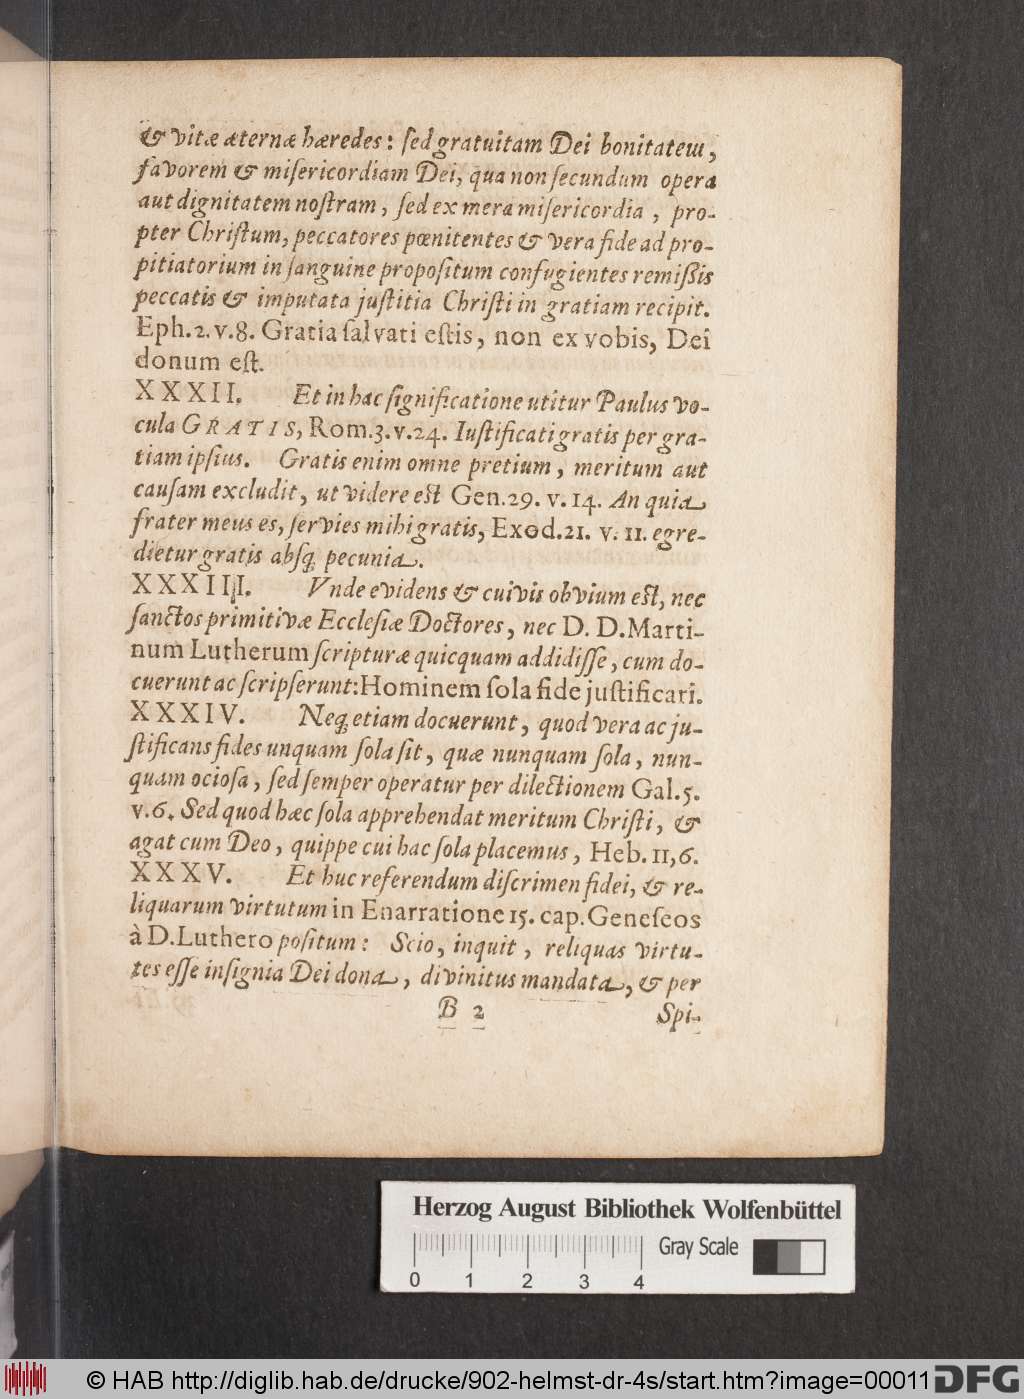 & vitæ æternæ hæredes: ſed gratuitam Dei bonitatem,
favorem & miſericordiam Dei, qua non ſecundum opera
aut dignitatem noſtram, ſed ex mera miſericordia, pro-
pter Chriſtum, peccatores pœnitentes & vera fide ad pro-
pitiatorium in ſanguine propoſitum confugientes remiſsis
peccatis & imputata juſtitia Chriſti in gratiam recipit.
Eph.2.v.8. Gratia ſalvati eſtis, non ex vobis, Dei
donum eſt.
XXXII. Et in hac ſignificatione utitur Paulus vo-
cula GRATIS, Rom.3.v.24. Iuſtificati gratis per gra-
tiam ipſius. Gratis enim omne pretium, meritum aut
cauſam excludit, ut videre eſt Gen.29. v.14. An quia
frater meus es, ſervies mihi gratis, Exod.21. v. 11. egre-
dietur gratis absq; pecunia.
XXXIII. Vnde evidens & cuivis obvium eſt, nec
ſanctos primitivæ Eccleſiæ Doctores, nec D. D. Marti-
num Lutherum ſcripturæ quicquam addidiſſe, cum do-
cuerunt ac ſcripſerunt: Hominem ſola fide juſtificari.
XXXIV. Neq; etiam docuerunt, quod vera ac ju-
ſtificans fides unquam ſola ſit, quæ nunquam ſola, nun-
quam ocioſa, ſed ſemper operatur per dilectionem Gal.5.
v.6. Sed quod hæc ſola apprehendat meritum Chriſti, &
agat cum Deo, quippe cui hac ſola placemus, Heb.11,6.
XXXV. Et huc referendum diſcrimen fidei, & re-
liquarum virtutum in Enarratione 15. cap. Geneſeos
à D. Luthero poſitum: Scio, inquit, reliquas virtu-
tes eſſe inſignia Dei dona, divinitus mandata, & per
B 2 Spi-
Herzog August Bibliothek Wolfenbüttel
Gray Scale
0 1 2 3 4
© HAB http://diglib.hab.de/drucke/902-helmst-dr-4s/start.htm?image=00011
DFG